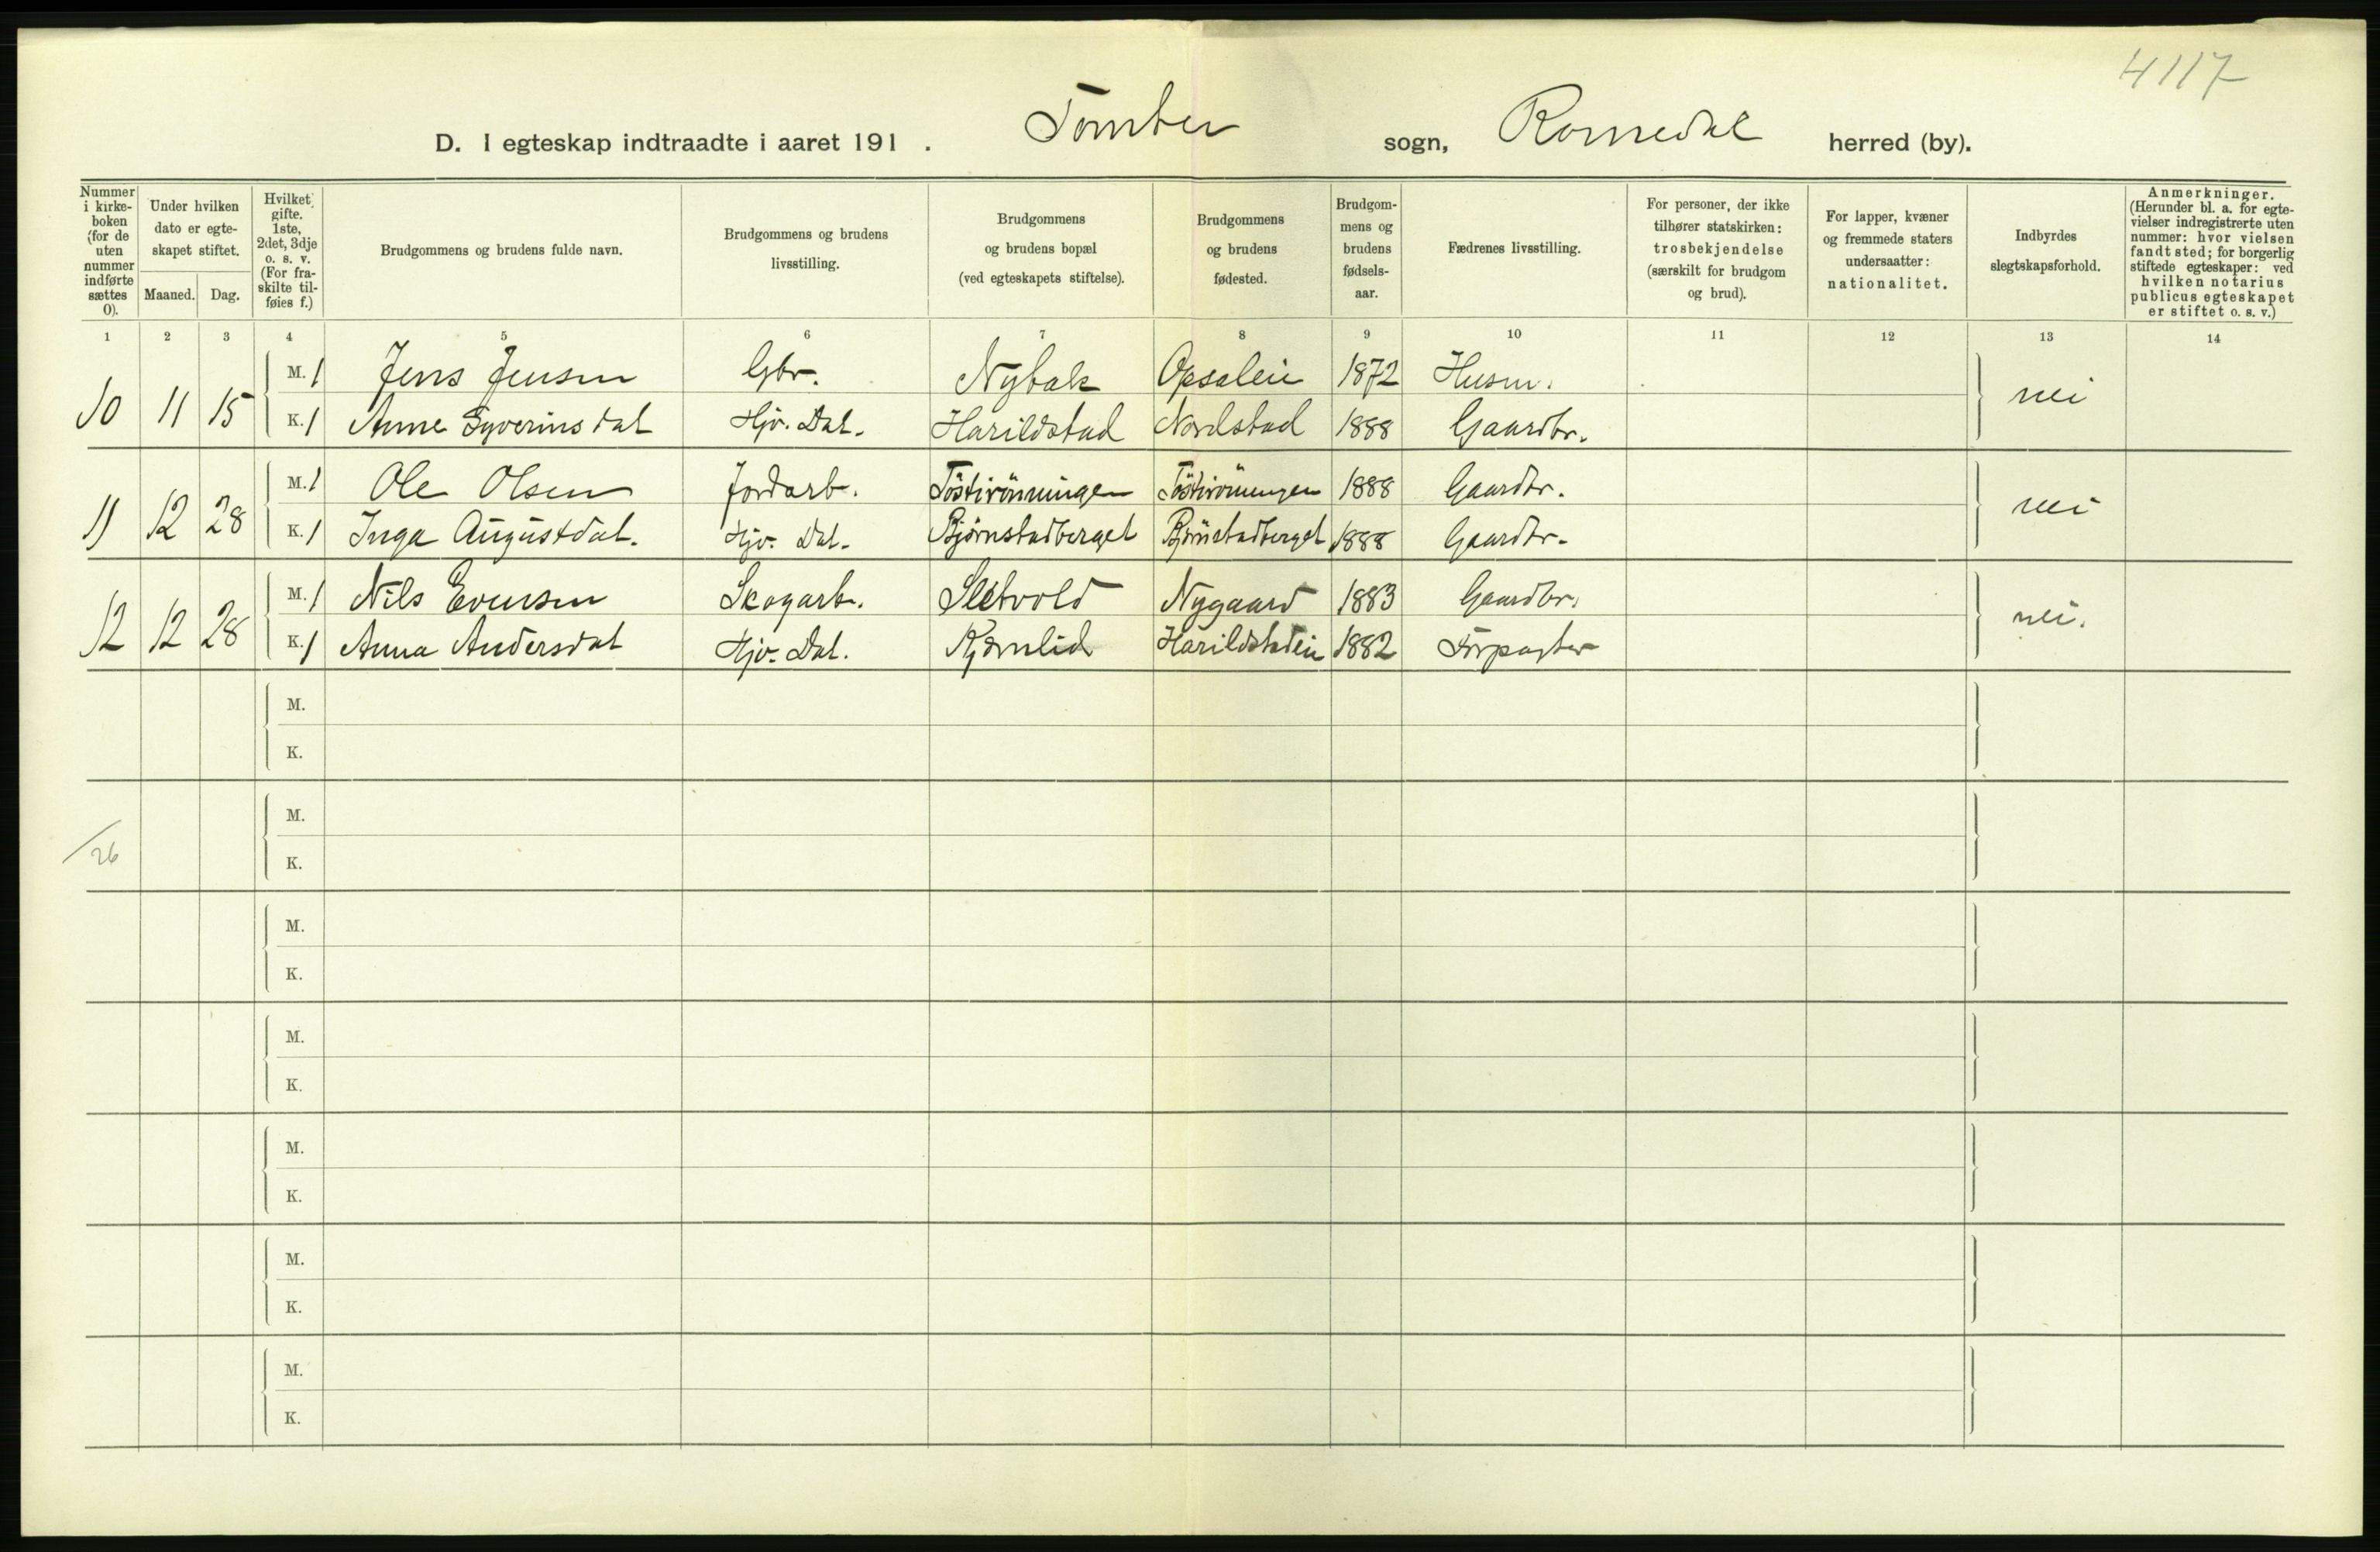 4117
D. I egteskap indtraadte i aaret 191 . Tomter sogn, Romedal herred (by).
Nummer i kirke-boken (for de uten nummer indførte sættes 0).
Under hvilken dato er egte-skapet stiftet.
Maaned. Dag.
Hvilket gifte. 1ste, 2det, 3dje o. s. v. (For fra-skilte til-føies f.)
Brudgommens og brudens fulde navn.
Brudgommens og brudens livsstilling.
Brudgommens og brudens bopæl (ved egteskapets stiftelse).
Brudgommens og brudens fødested.
Brudgom-mens og brudens fødsels-aar.
Fædrenes livsstilling.
For personer, der ikke tilhører statskirken: trosbekjendelse (særskilt for brudgom og brud).
For lapper, kvæner og fremmede staters undersaatter: nationalitet.
Indbyrdes slegtskapsforhold.
Anmerkninger. (Herunder bl. a. for egte-vielser indregistrerte uten nummer: hvor vielsen fandt sted; for borgerlig stiftede egteskaper: ved hvilken notarius publicus egteskapet er stiftet o. s. v.)
1 2 3 4 5 6 7 8 9 10 11 12 13 14
M. 1 Jens Jensen Gbr. Nybak Opsaleie 1872 Husm.
10 11 15 nei
K. 1 Anne Syverinsdat Hjv. Dat. Harildstad Nordstad 1888 Gaardbr.
M. 1 Ole Olsen Jordarb. Töstirönningen Töstirönningen 1888 Gaardbr.
11 12 28 nei
K. 1 Inga Augustdat. Hjv. Dat. Bjørnstadberget Bjørnstadberget 1888 Gaardbr.
M. 1 Nils Evensen Skogarb. Sletvold Nygaard 1883 Gaardbr.
12 12 28 nei.
K. 1 Anna Andersdat Hjv. Dat. Kjærnlid Harildstadeie 1882 Forpagter
M.
K.
M.
26
K.
M.
K.
M.
K.
M.
K.
M.
K.
M.
K.